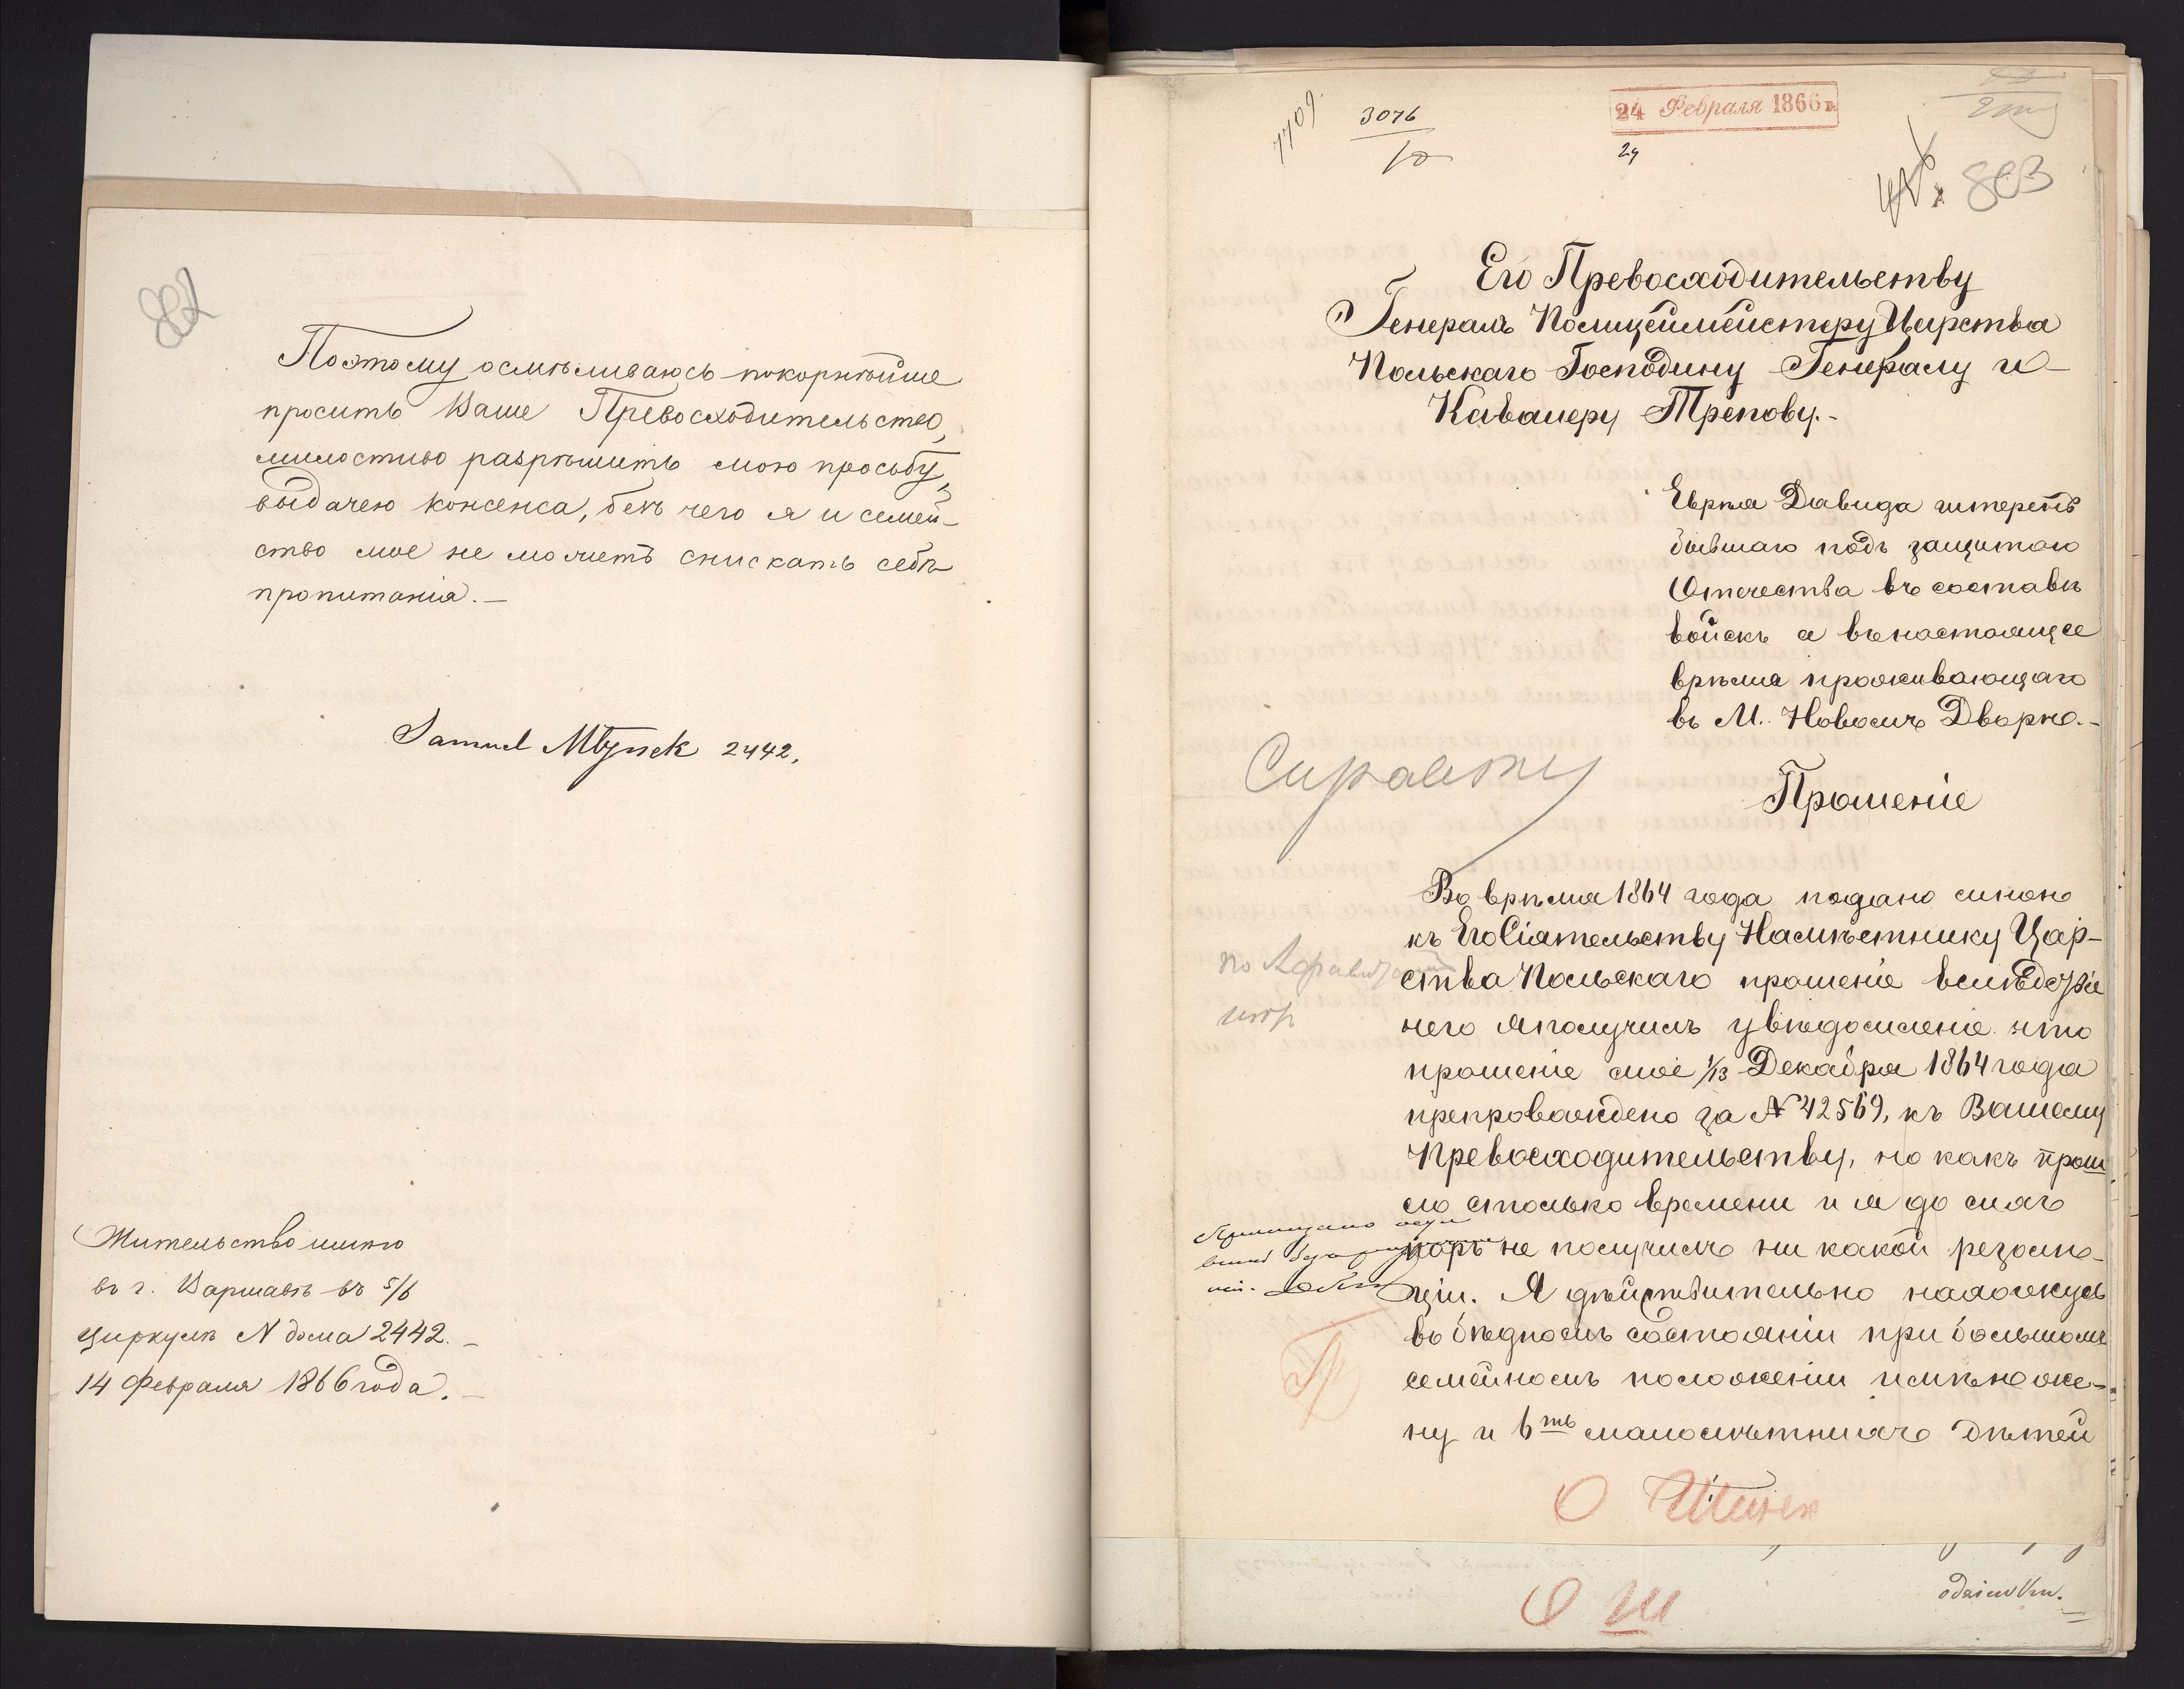 882
Поэтому осмѣливаюсь покорнѣйше
просить Ваше Превосходительство,
милостиво разрѣшить мою прособу,
выдачею консенса, безъ чего я и семей-
ство мое не можетъ снискать себѣ
пропитанія.—
Samuel Młynek 2442.
Жительство имѣю
въ г. Варшавѣ въ 5/6
циркулѣ N дома 2442.—
14 Февраля 1866 года.—
7709
3076
10
24 Февраля 1866 г.
24
803
Его Превосходительству
Генералъ Полицеймейстеру Царства
Польскаго Господину Генералу и
Кавалеру Трепову.-
Еврѣя Давида
бывшаго подъ защитою
Отечества въ составѣ
войскъ а въ настоящее
врѣмя проживающаго
въ М. Новомъ Дворѣ.-
Справку
Прошеніе
Во врѣмя 1864 года подано мною
къ Его Сіятельству Намѣстнику Цар-
ства Польскаго прошеніе вслѣдствіе
чего я получилъ увѣдомленіе что
прошеніе мое 1/13 Декабря 1864 года
препровождено за N 42569, къ Вашему
Превосходительству, но какъ прош
ло столько времени и я до сихъ
поръ не получилъ ни какой резолю-
ціи. Я дѣйствительно нахожусь
въ бѣдномъ состояніи при большомъ
семейномъ положеніи имѣю же-
ну и 6ть малолѣтнихъ дѣтей
О
О Ш